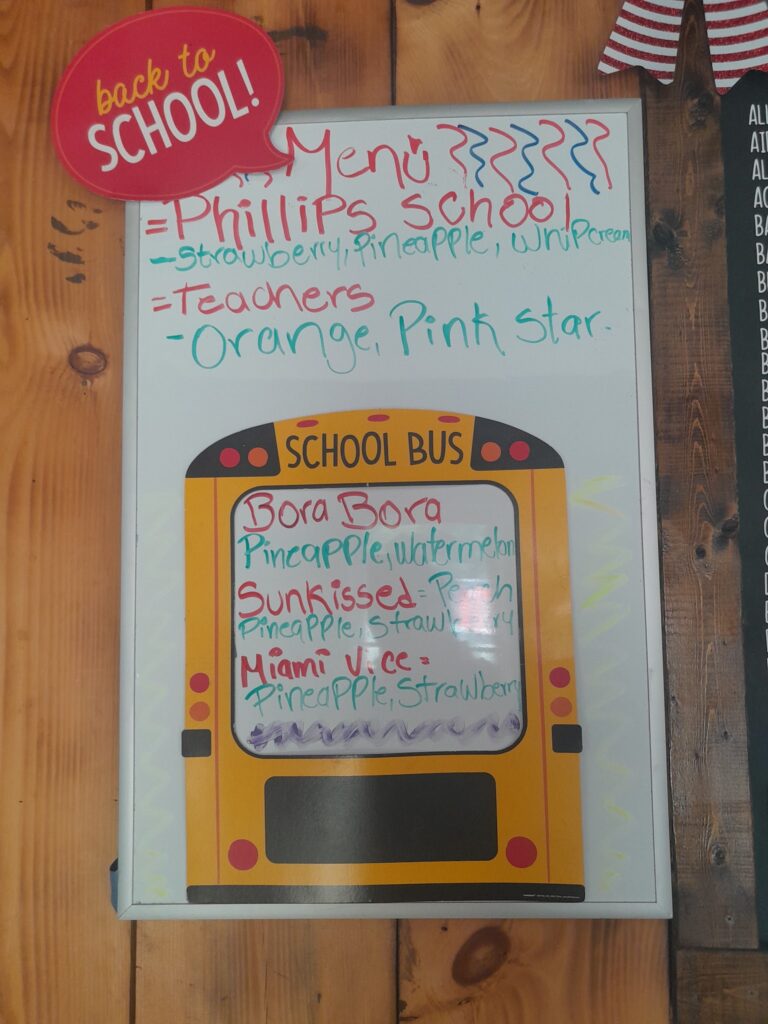 back to
SCHOOL!
Menu
=Phillips School
-Strawberry, Pineapple, Whipcream
=Teachers
-Orange, Pink Star.
SCHOOL BUS
Bora Bora
Pineapple, Watermelon
Sunkissed = Peach
Pineapple, Strawberry
Miami Vice =
Pineapple, Strawberry